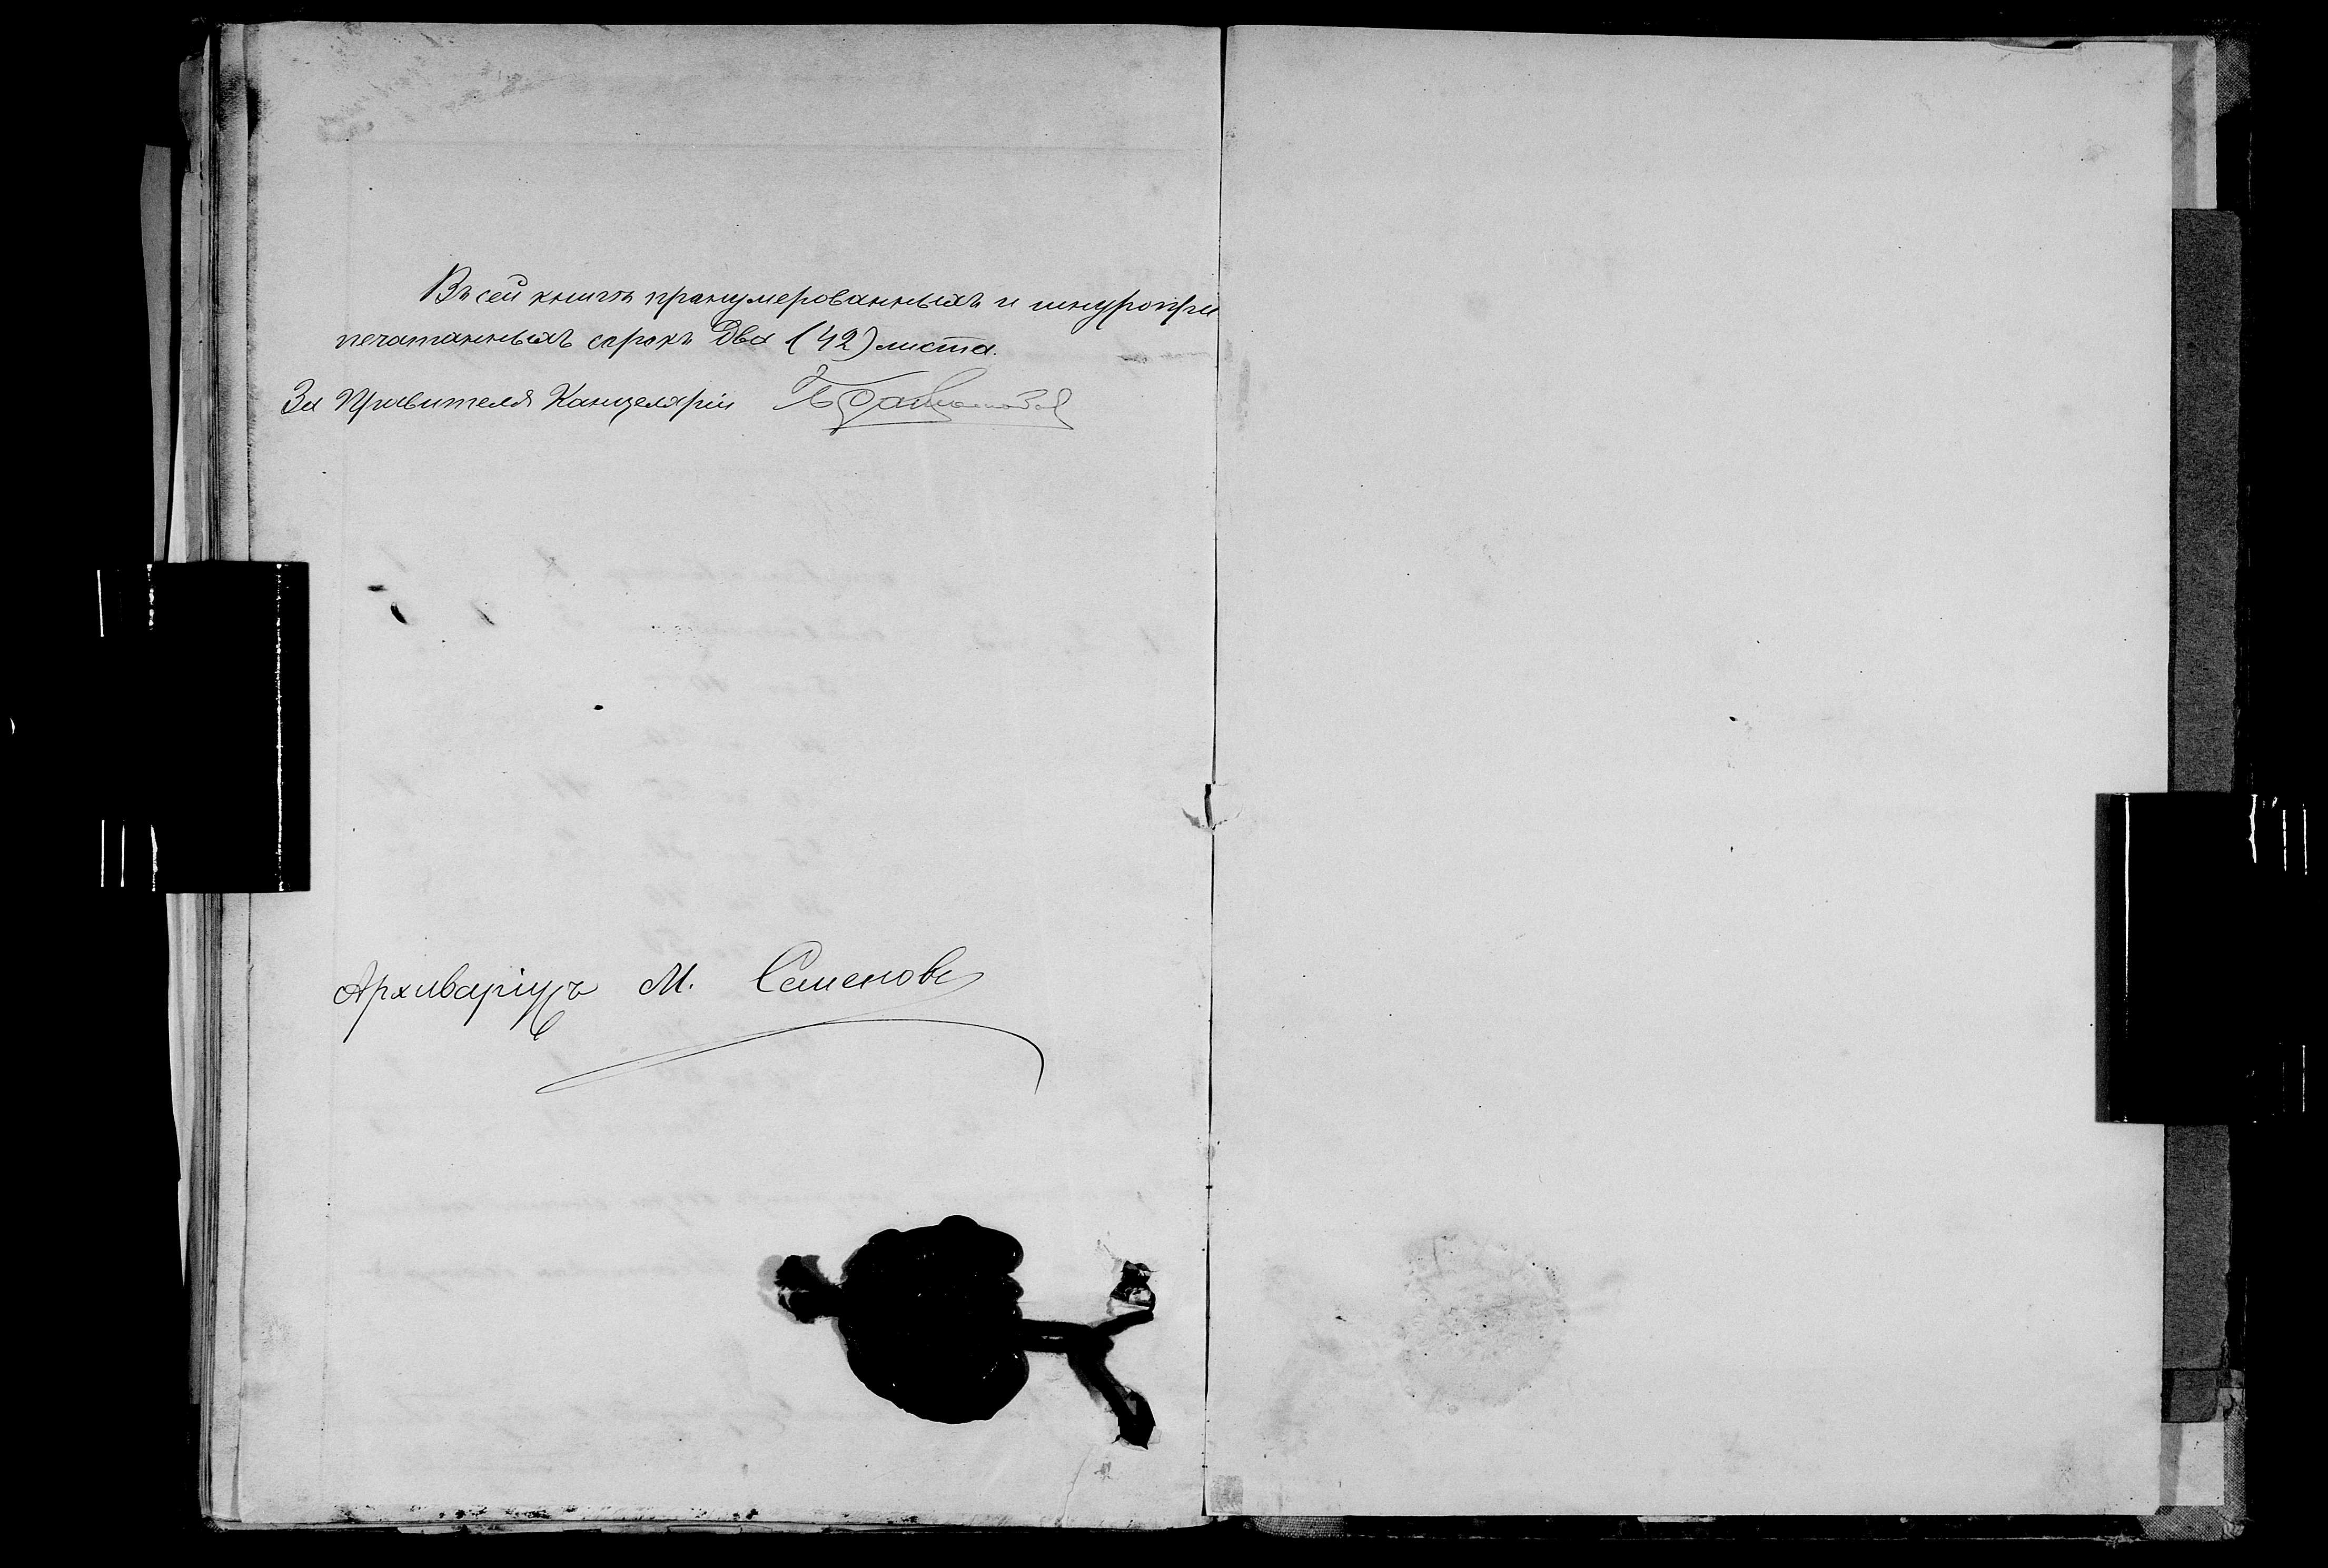 Въ сей книгѣ пранумерованныхъ и шнуропри
печатанныхъ сорокъ два (42) листа.
За Правителя Канцеляріи
Архиваріусъ М. Семеновъ